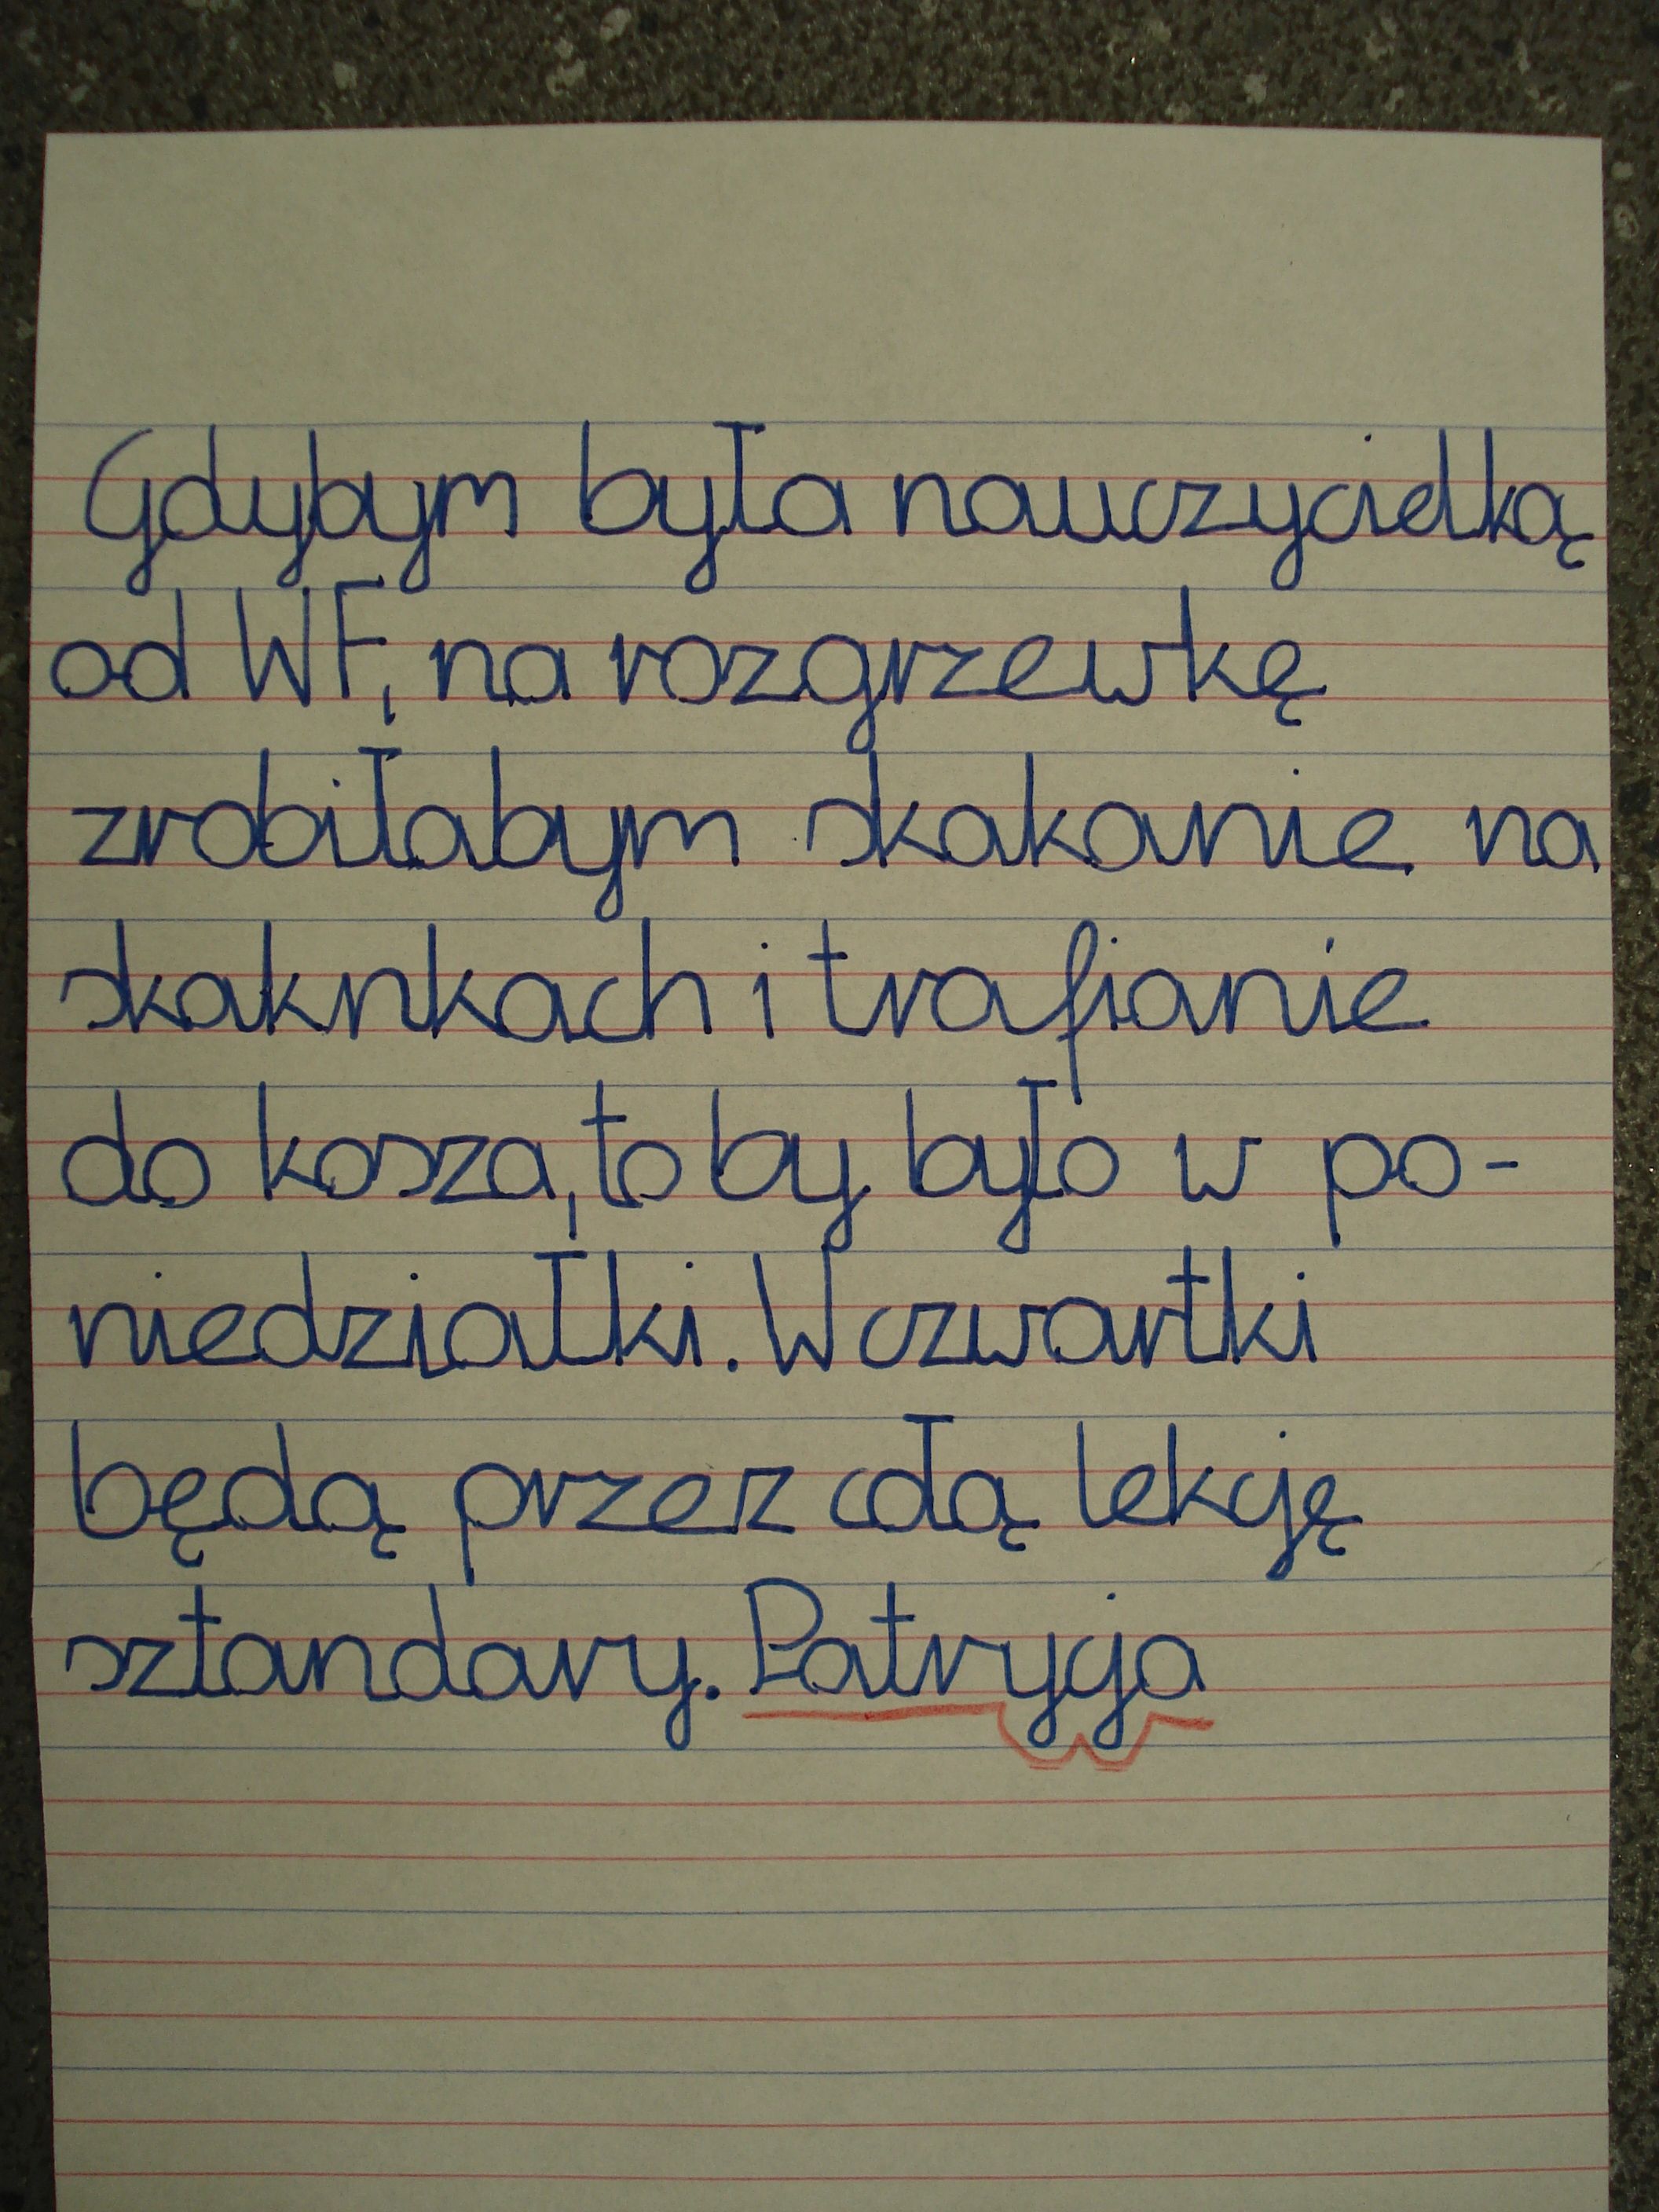 Gdybym była nauczycielką
od WF, na rozgrzewkę
zrobiłabym skakanie na
skaknkach i trafianie
do kosza, to by było w po-
niedziałki. W czwartki
będą przez całą lekcję
sztandary. Patrycja